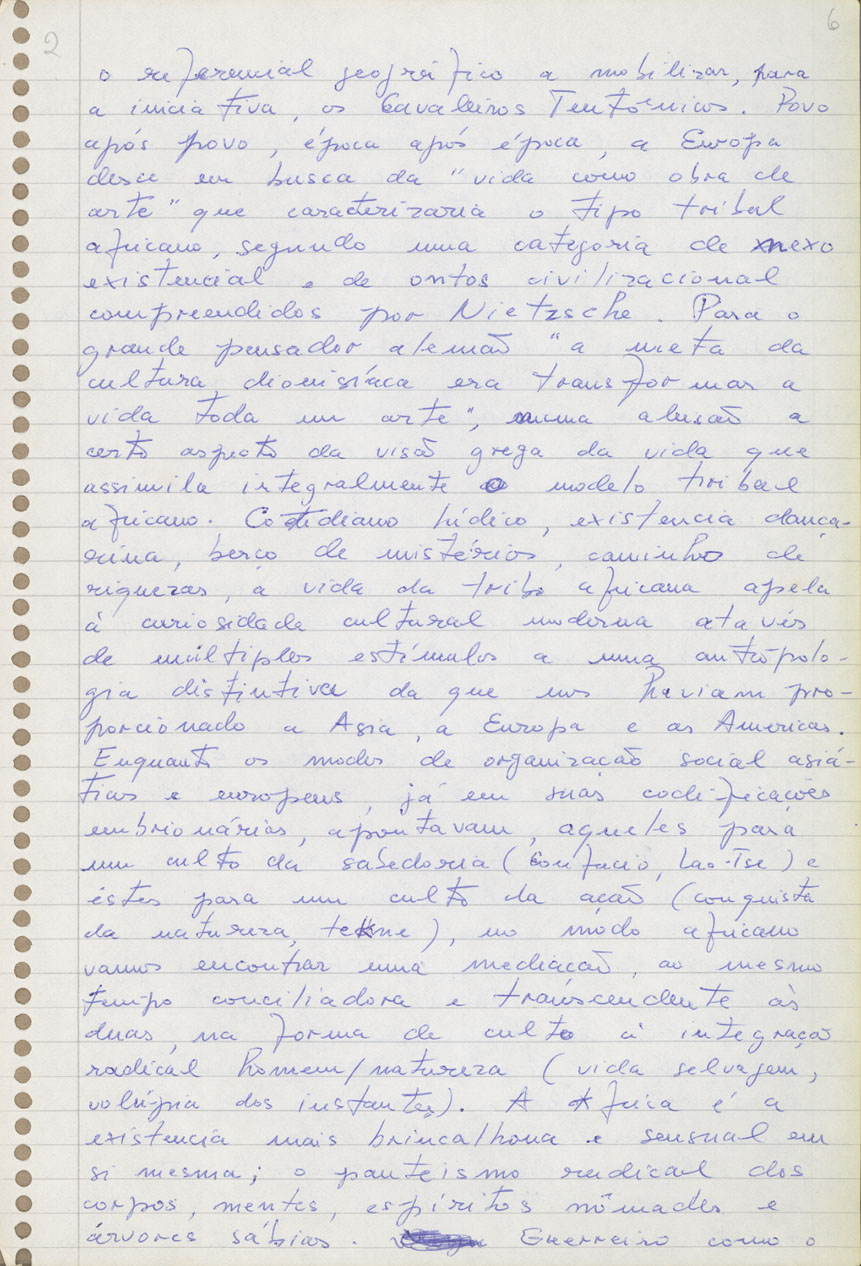 2
6
o referencial geográfico a mobilizar, para
a iniciativa, os Cavaleiros Teutônicos. Povo
após povo, época após época, a Europa
desce em busca da "vida como obra de
arte" que caracterizaria o tipo tribal
africano, segundo uma categoria de nexo
existencial e de ontos civilizacional
compreendidos por Nietzsche. Para o
grande pensador alemão "a meta da
cultura dionisíaca era transformar a
vida toda em arte", numa alusão a
certo aspecto da visão grega da vida que
assimila integralmente o modelo tribal
africano. Cotidiano lúdico, existencia dança-
rina, berço de mistérios, caminho de
riquezas, a vida da tribo africana apela
à curiosidade cultural moderna atavés
de múltiplos estímulos a uma antropolo-
gia distintiva da que nos haviam pro-
porcionado a Asia, a Europa e as Americas.
Enquanto os modos de organização social asiá-
ticos e europeus, já em suas codificações
embrionárias, apontavam, aqueles para
um culto da sabedoria (Confucio, Lao-Tse) e
êstes para um culto da ação (conquista
da natureza, tekne), no modo africano
vamos encontrar uma mediação, ao mesmo
tempo conciliadora e transcendente às
duas, na forma de culto à integração
radical homem/natureza (vida selvagem,
volúpia dos instantes). A Africa é a
existencia mais brincalhona e sensual em
si mesma; o panteismo radical dos
corpos, mentes, espíritos nômades e
árvores sábias. Guerreiro como o